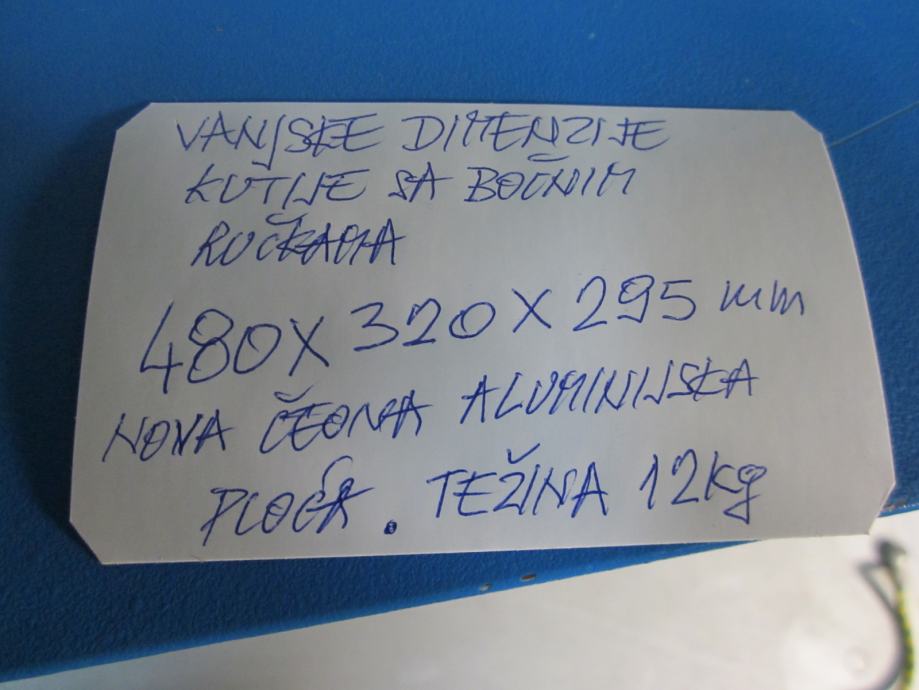 VANJSKE DIMENZIJE
KUTIJE SA BOČNIM
RUČKAMA
480 X 320 X 295 mm
NOVA ČEONA ALUMINIJSKA
PLOČA. TEŽINA 12kg